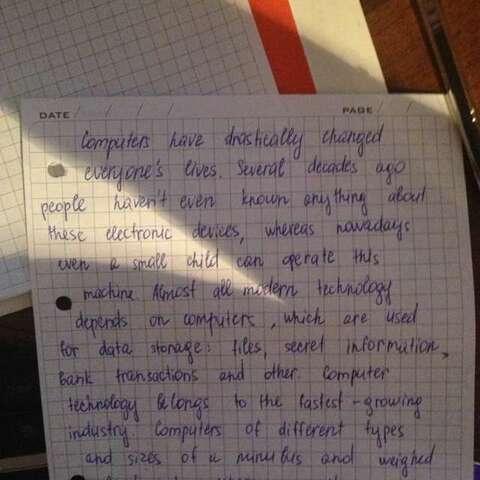 DATE / / / PAGE / /
Computers have drastically changed
everyone's lives. Several decades ago
people haven't even known anything about
these electronic devices, whereas nowadays
even a small child can operate this
machine. Almost all modern technology
depends on computers, which are used
for data storage: files, secret information,
bank transactions and other. Computer
technology belongs to the fastest-growing
industry. Computers of different types
and sizes of a minibus and weighed